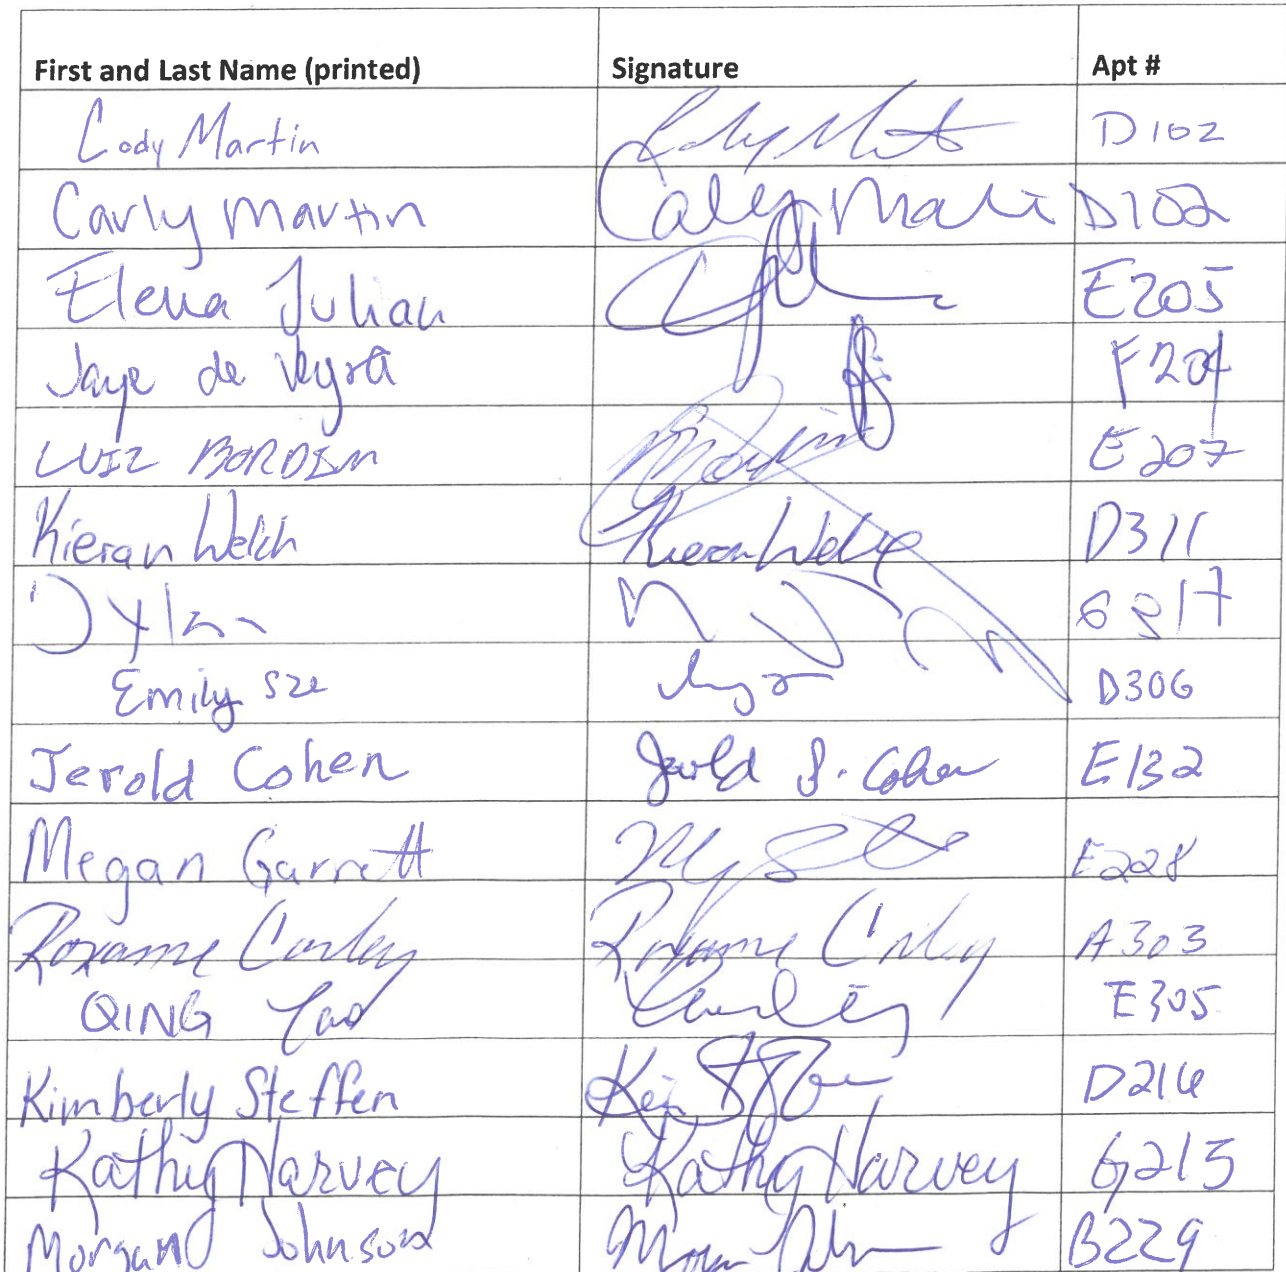 First and Last Name (printed) Signature Apt #
Cody Martin D102
Carly Martin D102
Elena Julian E205
Jaye de Veyra F204
LUIZ BORDIM E207
Kieran Welch Kieran Welch D311
Dylan
Emily Sze D306
Jerold Cohen Jerold S. Cohen E132
Megan Garrett E228
Roxanne Corley Roxanne Corley A303
QING Yao E305
Kimberly Steffen D216
Kathy Harvey Kathy Harvey G215
Morgan Johnson B229